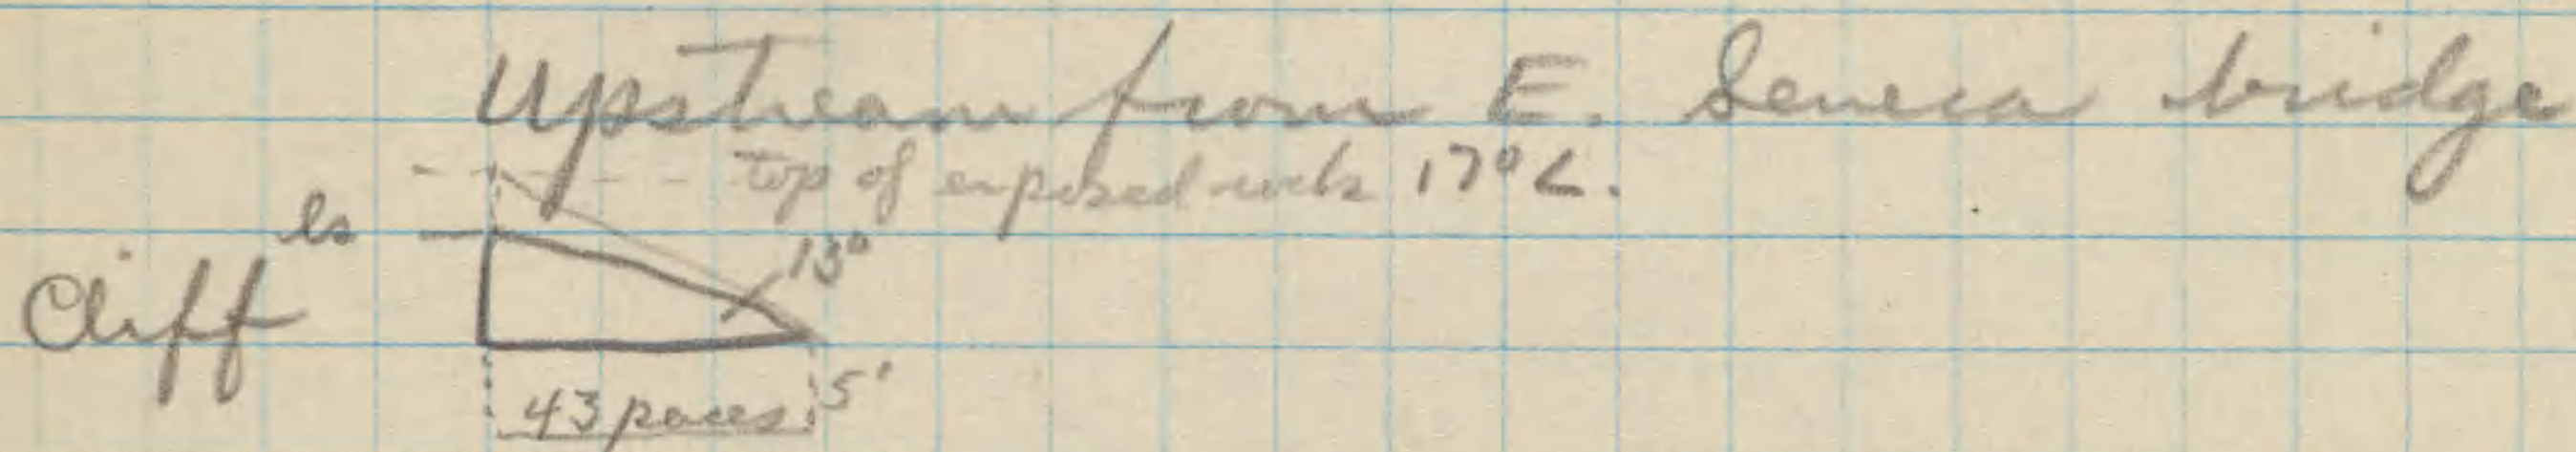 Upstream from E. Seneca bridge
top of exposed rock 17°∠.
ls
13°
Cliff
5'
43 paces